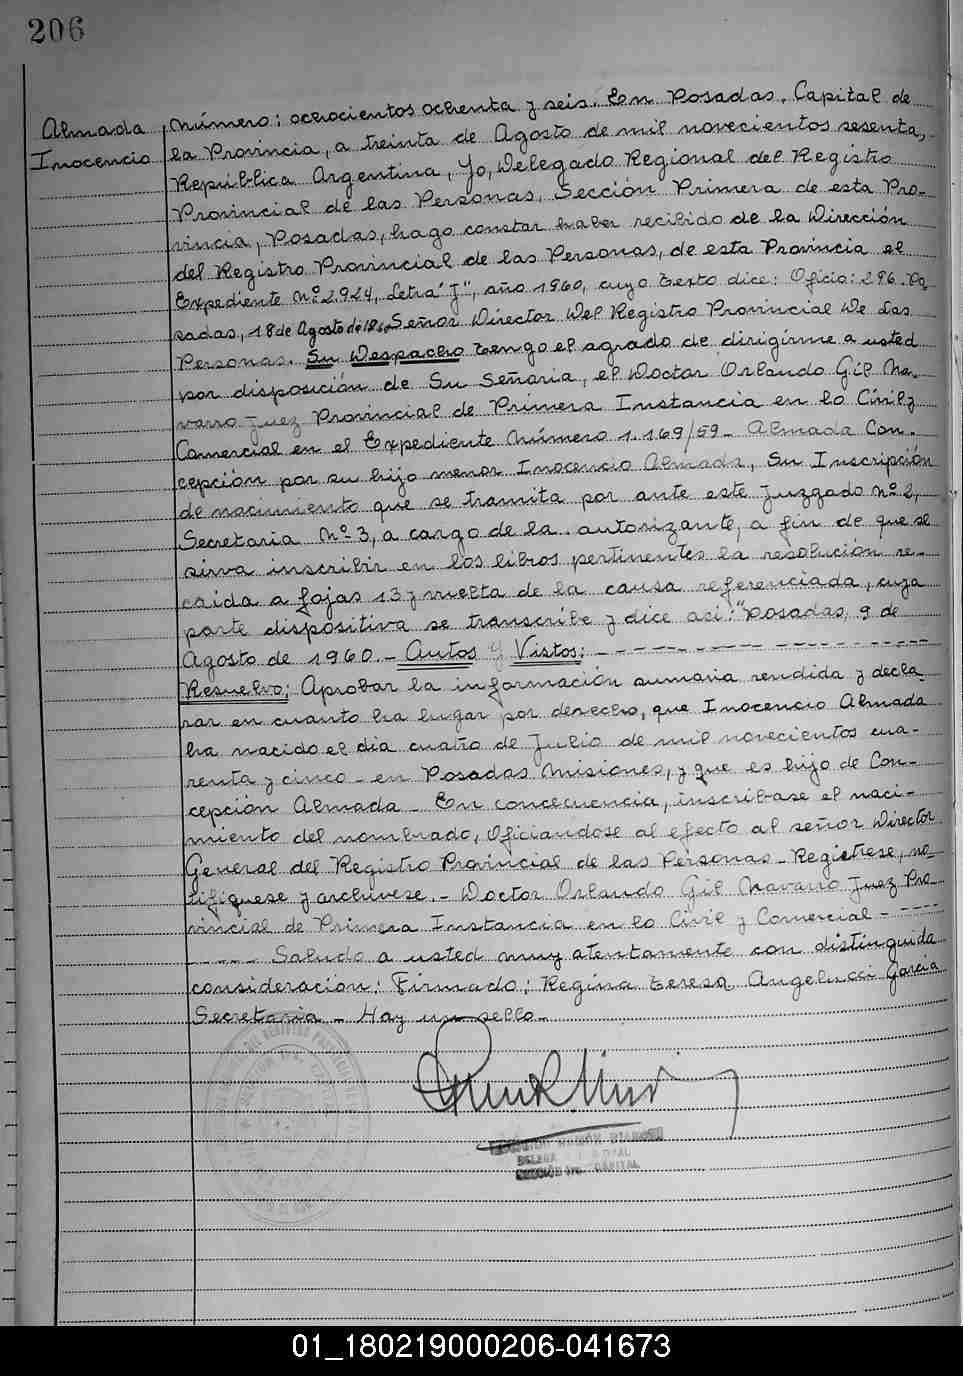 206
Almada
Inocencio
Número: ochocientos ochenta y seis. En Posadas. Capital de
la Provincia, a treinta de Agosto de mil novecientos sesenta,
República Argentina, Yo, Delegado Regional del Registro
Provincial de las Personas, Sección Primera de esta Pro-
vincia, Posadas, hago constar haber recibido de la Dirección
del Registro Provincial de las Personas, de esta Provincia el
Expediente Nº 2.924, Letra "J", año 1960, cuyo texto dice: Oficio: 296. Po
sadas, 18 de Agosto de 1960 Señor Director Del Registro Provincial De Las
Personas. Su Despacho tengo el agrado de dirigirme a usted
por disposición de Su Señoria, el Doctor Orlando Gil Na-
varro Juez Provincial de Primera Instancia en lo Civil y
Comercial en el Expediente Número 1.169/59_ Almada Con-
cepción por su hijo menor Inocencio Almada, Su Inscripción
de nacimiento que se tramita por ante este Juzgado Nº 2,
Secretaria Nº 3, a cargo de la autorizante, a fin de que se
sirva inscribir en los libros pertinentes la resolución re-
caida a fojas 13 y vuelta de la causa referenciada, cuya
parte dispositiva se transcribe y dice aci: "Posadas, 9 de
Agosto de 1960. _ Autos y Vistos: _ _ _ _ _ _ _ _ _ _
Resuelvo: Aprobar la información sumaria rendida y decla
rar en cuanto ha lugar por derecho, que Inocencio Almada
ha nacido el día cuatro de Julio de mil novecientos cua-
renta y cinco _ en Posadas Misiones, y que es hijo de Con-
cepción Almada _ En concecuencia, inscribase el naci-
miento del nombrado, Oficiandose al efecto al señor Director
General del Registro Provincial de las Personas _ Registrese, no-
tifiquese y archivese. _ Doctor Orlando Gil Navarro Juez Pro-
vincial de Primera Instancia en lo Civil y Comercial - - - - -
- - - - - Saludo a usted muy atentamente con distinguida
consideración: Firmado: Regina Teresa Angelucci Garcia
Secretaria _ Hay un sello _
01_180219000206-041673